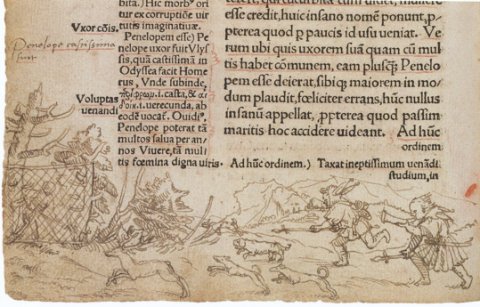 bita.) Hic morb⁹ ori
tur ex corruptiõe vir
tutis imaginatiuæ.
Vxor cõis.
Penelopem esse) Pe
nelope vxor fuit Vlys
sis, quã castissimã in
Odyssea facit Home
rus, Vnde subinde,
.i. casta, &
.i. verecunda, ab
eodē vocat. Ouidi⁹.
Penelope poterat tã
multos salua per an
nos Viuere, tã mul
tis fœmina digna viris.
Penelope castissima
fuit
Voluptas
uenandi
esse credit, huic insano nomē ponunt, p
pterea quod p paucis id usu ueniat. Ve
rum ubi quis uxorem suã quam cũ mul
tis habet cõmunem, eam plusq̃ Penelo
pem esse deierat, sibiq̃ maiorem in mo
dum plaudit, fœliciter errans, hũc nullus
insanũ appellat, ppterea quod passim
maritis hoc accidere uideant. Ad hũc
ordinem
Ad hũc ordinem.) Taxat ineptissimum uenãdi
studium, in